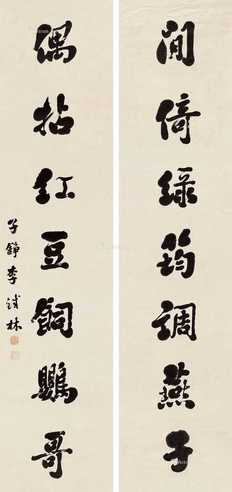 閒倚綠筠調燕子
偶拈紅豆飼鸚哥
子錚李
林